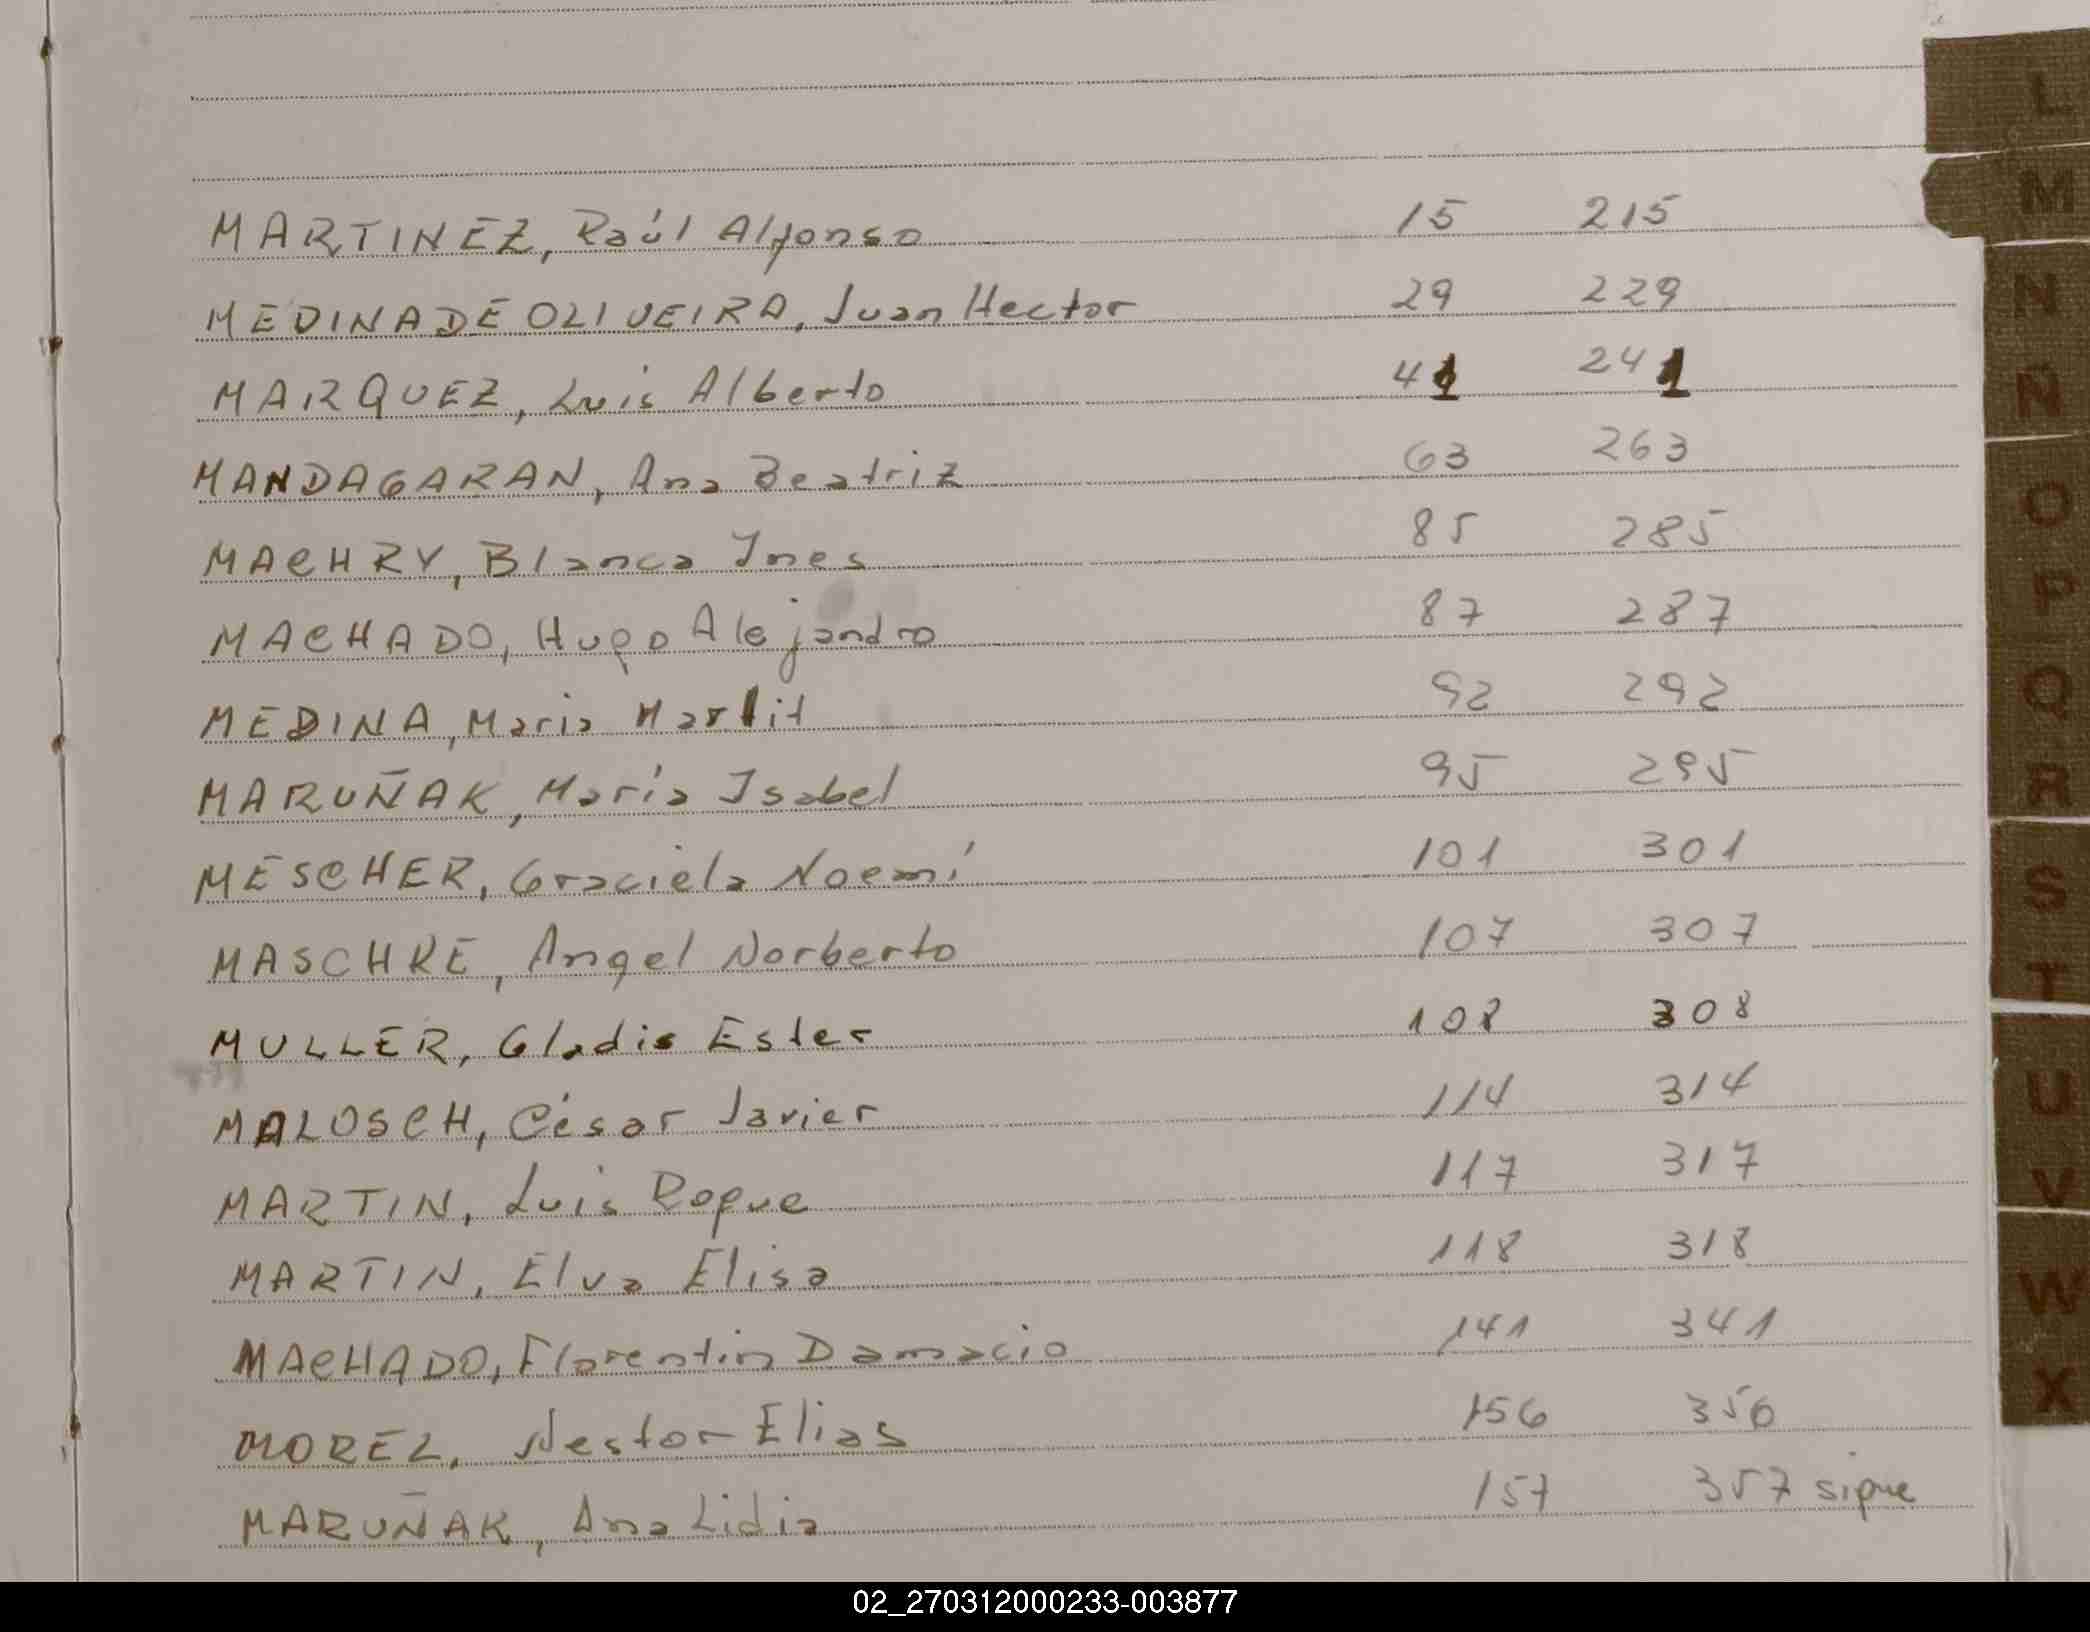 MARTINEZ, Raúl Alfonso 15 215
MEDINA DE OLIVEIRA, Juan Hector 29 229
MARQUEZ, Luis Alberto 41 241
MANDAGARAN, Ana Beatriz 63 263
MACHRY, Blanca Ines 85 285
MACHADO, Hugo Alejandro 87 287
MEDINA, Maria Marlit 92 292
MARUÑAK, María Isabel 95 295
MESCHER, Graciela Noemí 101 301
MASCHKE, Angel Norberto 107 307
MULLER, Gladis Ester 108 308
MALOSCH, César Javier 114 314
MARTIN, Luis Roque 117 317
MARTIN, Elva Elisa 118 318
MACHADO, Florentin Damacio 141 341
MOREL, Nestor Elias 156 356
MARUÑAK, Ana Lidia 157 357 sigue
L
M
N
Ñ
O
P
Q
R
S
T
U
V
W
X
02_270312000233-003877